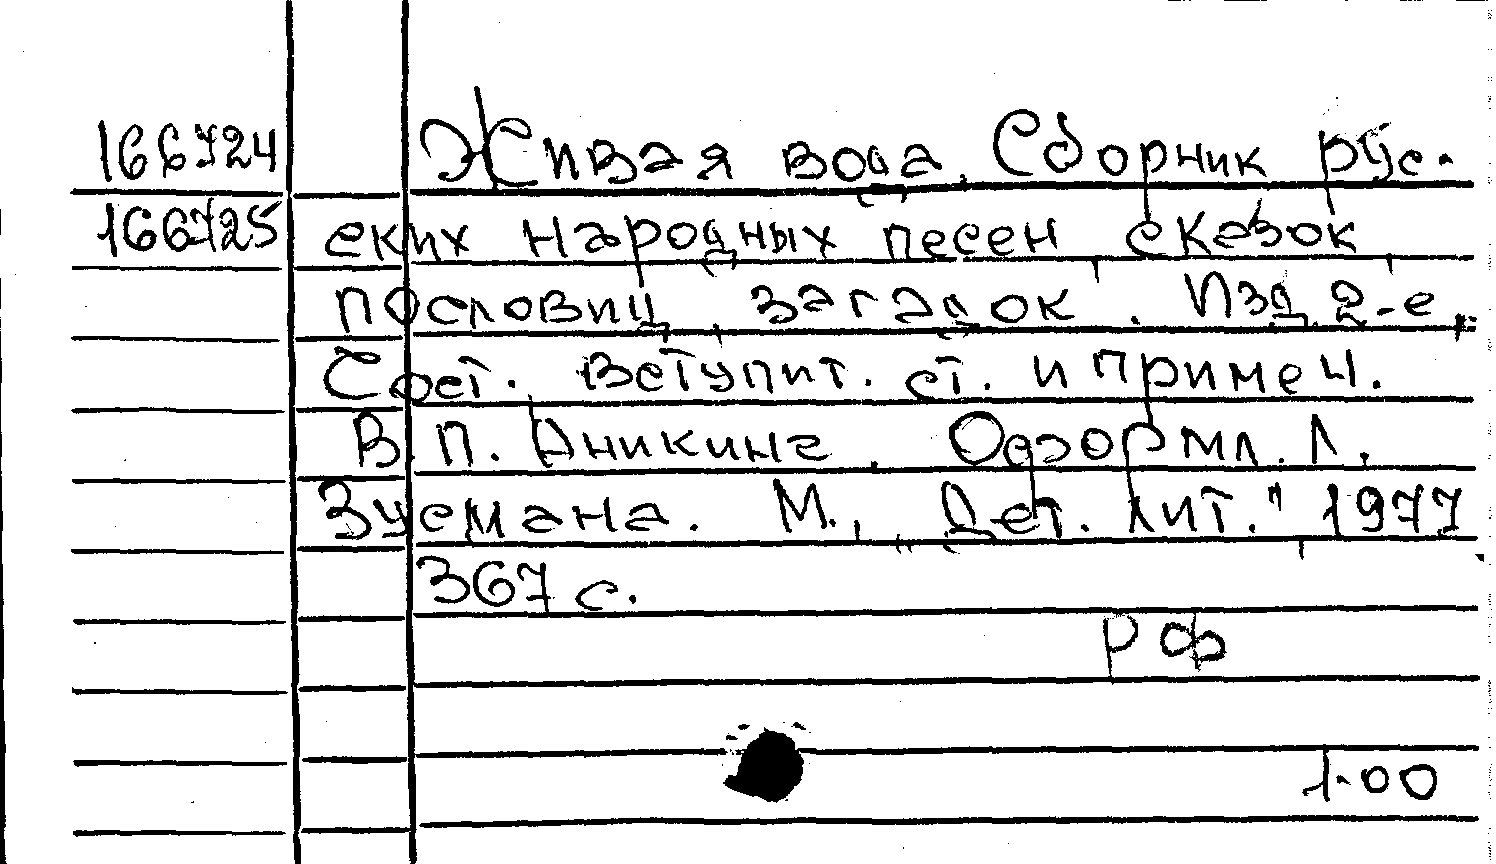 166724 Живая вода. Сборник рус-
166725 ских народных песен сказок,
пословиц, загадок. Изд. 2-е.
Сост. вступит. ст. и примеч.
В.П. Аникина. Оформл. Л.
Зусмана. М., „Дет. лит." 1977,
367 с.
РФ
1-00